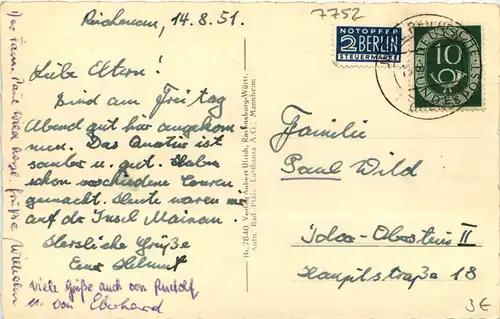 Reichenau, 14.8.51.
Liebe Eltern!
Sind am Freitag
Abend gut hier angekom
men. Das Quatier ist
sauber u. gut. Haben
schon verschiedene Touren
gemacht. Heute waren wir
auf der Insel Mainau.
Herzliche Grüße
Euer Helmut
viele Grüße auch von Rudolf
u. von Eberhard
Der Fam. Paul Wild
Grüße
Nr. 7840 Verlag Aubert Ulrich, Ravensburg-Württ.
Aufn. Bad.-Pfälz. Lufthansa A.G., Mannheim
7752
NOTOPFER
2 BERLIN
STEUERMARKE
DEUTSCHE BUNDESPOST
10
Familie
Paul Wild
Idar-Oberstein II
Hauptstraße 18
3€